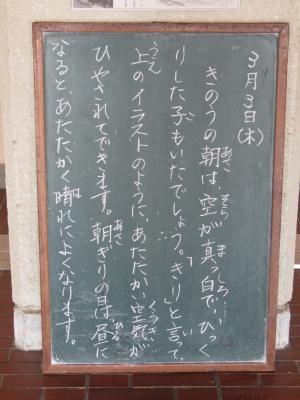 3月3日(木)
きのうの朝は、空が真っ白で、びっく
りした子もいたでしょう。「きり」と言って、
上のイラストのように、あたたかい空気が
ひやされてできます。朝ぎりの日は昼に
なると、あたたかく晴れによくなります。